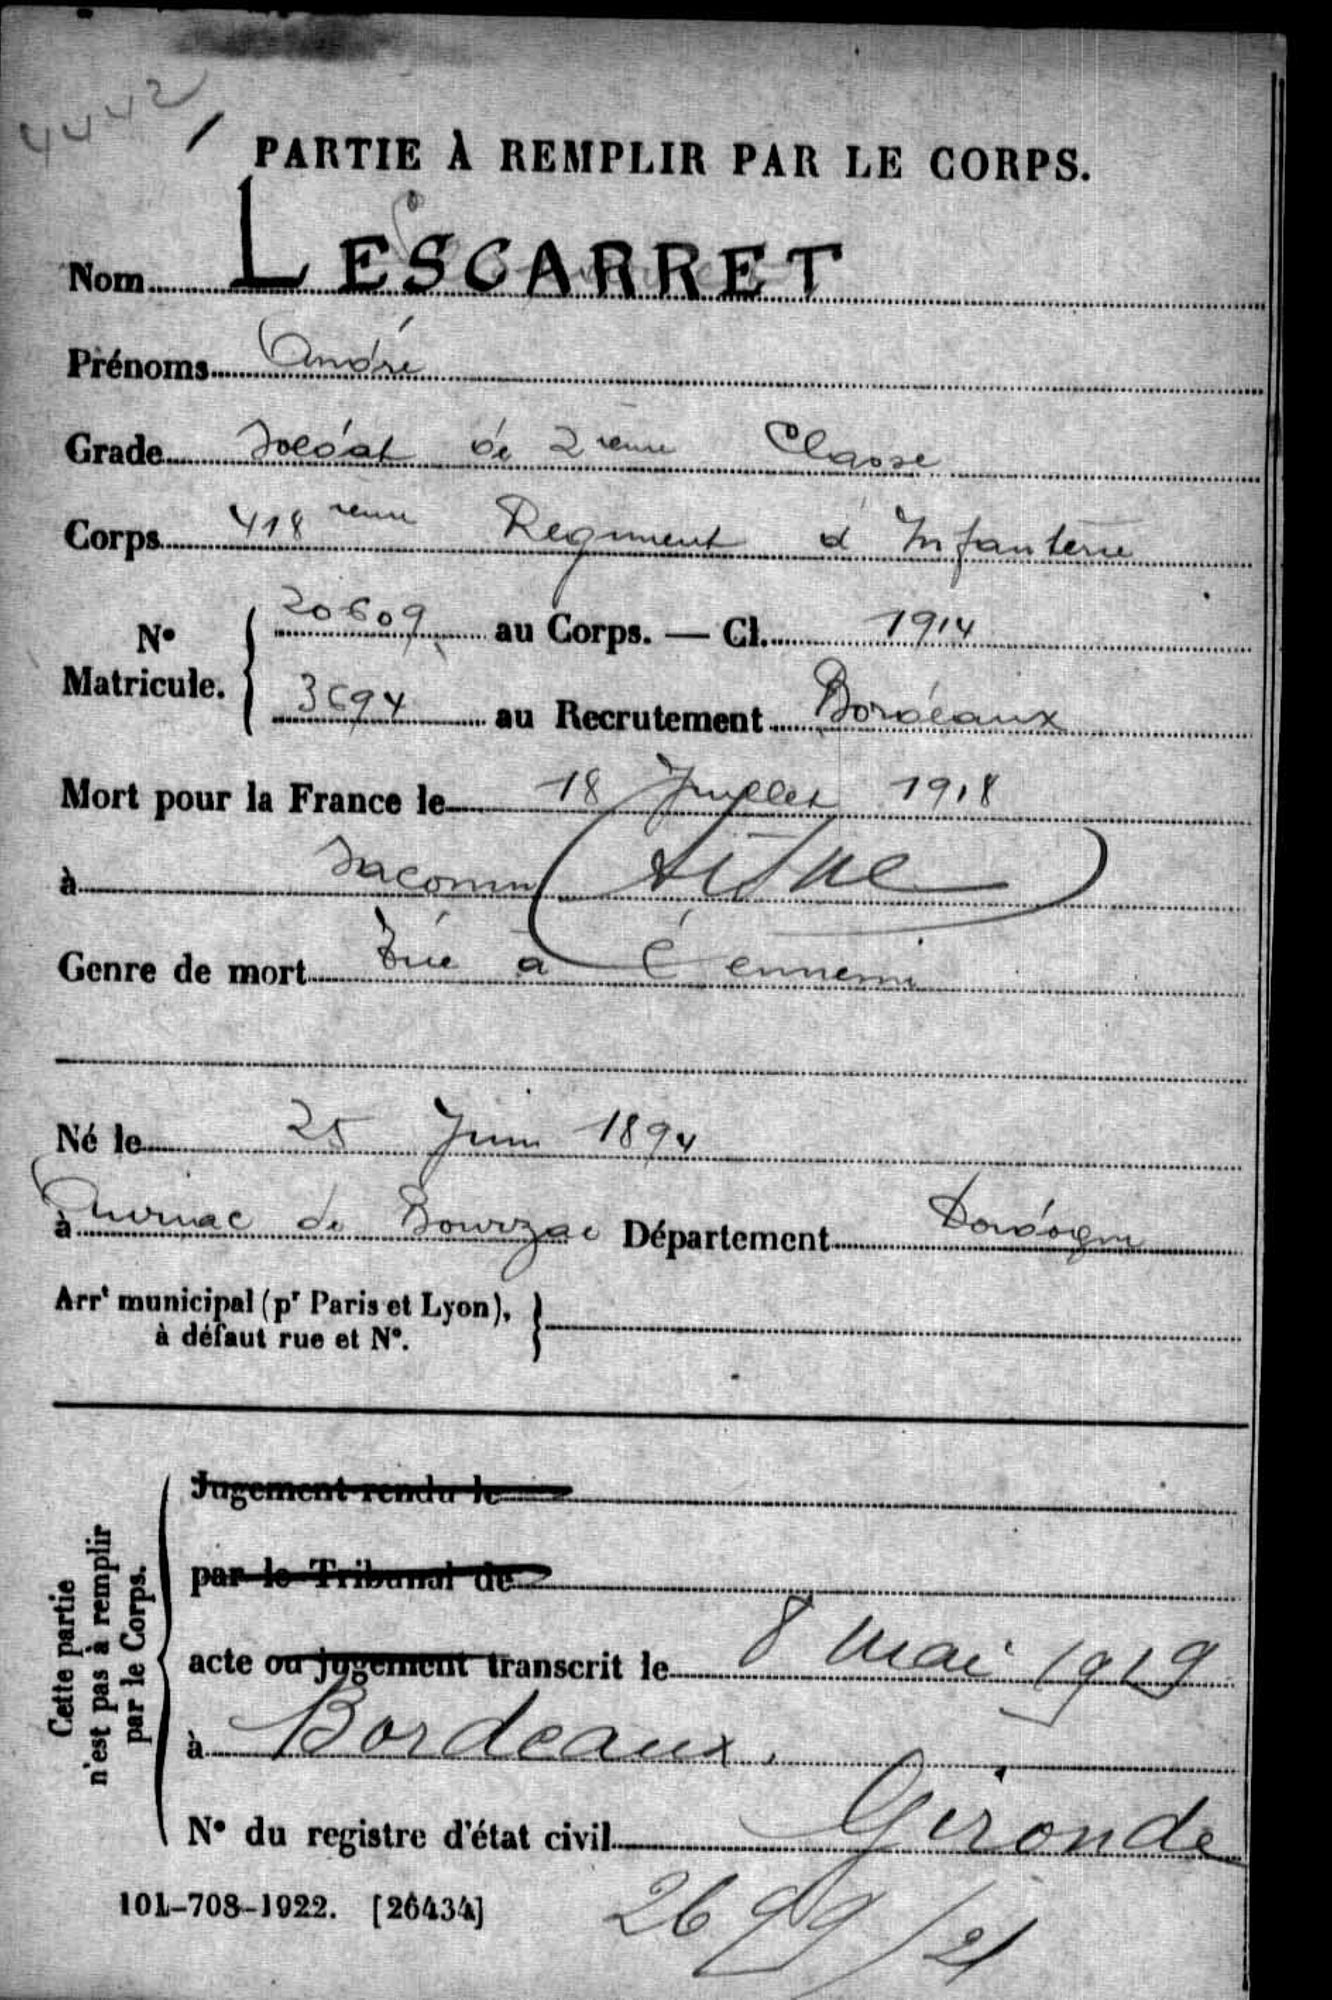 4442
PARTIE À REMPLIR PAR LE CORPS.
Nom LESCARRET
Prénoms André
Grade Soldat de 2ième Classe
Corps 418ième Regiment d'Infanterie
N° Matricule. 20609 au Corps. — Cl. 1914
3694 au Recrutement Bordeaux
Mort pour la France le 18 Juillet 1918
à Saconin (Aisne)
Genre de mort Tué à l'ennemi
Né le 25 Juin 1894
à Auriac de Bourzac Département Dordogne
Arrt municipal (pr Paris et Lyon),
à défaut rue et N°.
Cette partie
n'est pas à remplir
par le Corps.
Jugement rendu le
par le Tribunal de
acte ou jugement transcrit le 8 mai 1919
à Bordeaux.
N° du registre d'état civil Gironde
101-708-1922. [26434]